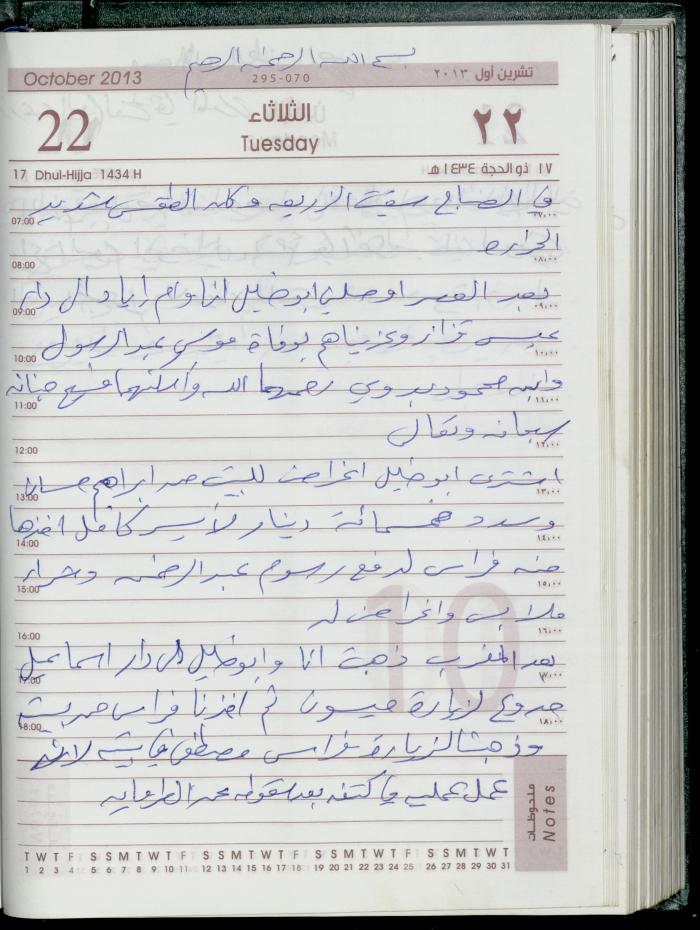 بسم الله الرحمن الرحيم
October 2013 295-070 تشرين أول ٢٠١٣
22 الثلاثاء ٢٢
Tuesday
17 Dhul-Hijja 1434 H ١٧ ذو الحجة ١٤٣٤ هـ
في الصباح سقيت الزريعه وكان الطقس شديد
07:00 ٠٧:٠٠
الحراره
08:00 ٠٨:٠٠
بعد العصر اوصلني ابو خليل انا وام رايا دال دار
09:00 ٠٩:٠٠
عيسى قزاز وعزيناهم بوفاة موسى عبد الرسول
10:00 ١٠:٠٠
وابنه محمود بدوي رحمهما الله واسكنهما فسيح جنانه
11:00 ١١:٠٠
سبحانه وتعالى
12:00 ١٢:٠٠
اشترى ابو خليل اغراض للبيت من ابراهيم
13:00 ١٣:٠٠
وسدد خمسمائة دينار لأيسر كامل اخذها
14:00 ١٤:٠٠
منه فراس لدفع رسوم عبد الرحمن وشراء
15:00 ١٥:٠٠
ملابس واغراض له
16:00 ١٦:٠٠
بعد المغرب ذهبت انا وابو خليل الى دار اسماعيل
17:00 ١٧:٠٠
جدوع لزيارة ميسون ثم اخذنا فراس من بيت
18:00 ١٨:٠٠
وذهبنا لزيارة فراس مصطفى لانه
عمل عمليه في كتفه بعد سقوطه عن
ملحوظات Notes
T W T F S S M T W T F S S M T W T F S S M T W T F S S M T W T
1 2 3 4 5 6 7 8 9 10 11 12 13 14 15 16 17 18 19 20 21 22 23 24 25 26 27 28 29 30 31